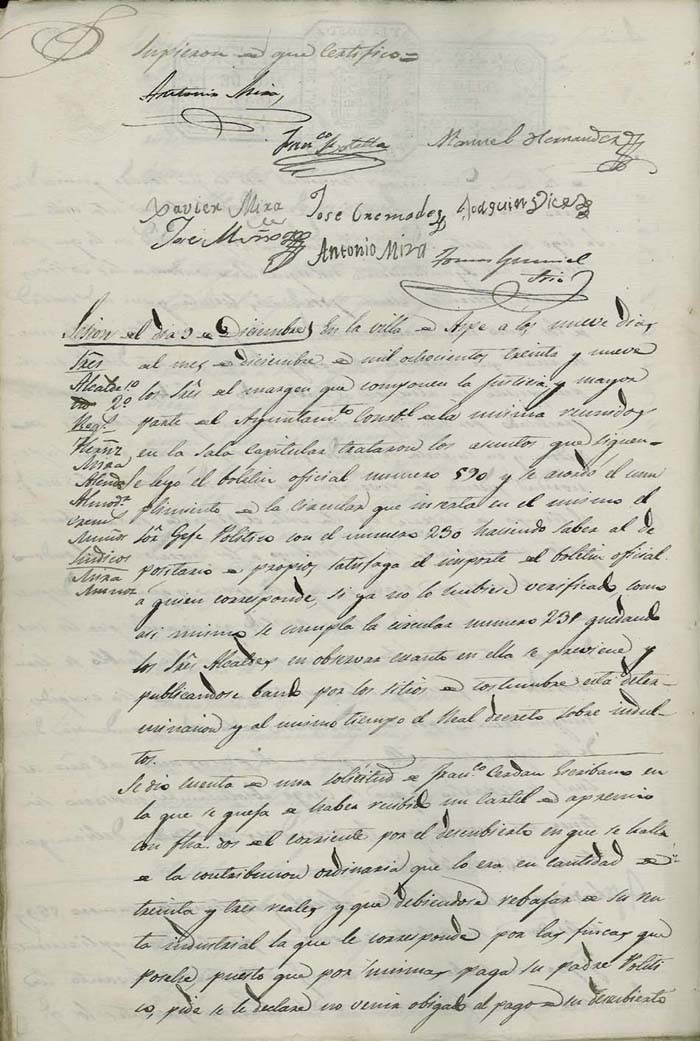 supieron de que certifico=
Antonio Mira
Franco Botella
Manuel Hernandez
Xavier Mira
Jose Cremades
Joaquin
Jose Muñoz
Antonio Mira
Tomas
Srio
Sesion del dia 9 de Diciembre
En la villa de Aspe a los nueve dias
del mes de diciembre de mil ochocientos treinta y nueve
los Sres del margen que componen la Justicia y mayor
parte del Ayuntamto Constl de la misma reunidos
en la sala capitular trataron los asuntos que siguen=
Se leyó el boletin oficial numero 590 y se acordó el cum
plimiento de la circular que inserta en el mismo el
Sor Gefe Politico con el numero 230 haciendo saber al de
positario de propios satisfaga el importe del boletin oficial
á quien corresponde, si ya no lo hubiese verificado como
asi mismo se cumpla la circular numero 231 quedando
los Sres Alcaldes en observar cuanto en ella se previene y
publicandose bando por los sitios de costumbre esta deter=
minacion y al mismo tiempo el Real decreto sobre indul=
tos.
Sres
Alcalde 1o
2o
Regs
Hernz
Mira
Almodr
Crem
Muñoz
Sindicos
Mira
Muñoz
Se dio cuenta de una solicitud de Franco Cerdan Escribano en
la que se queja de haber recibido un cartel de apremio
con fha. dos del corriente por el descubierto en que se halla
de la contribucion ordinaria que lo era en cantidad de
treinta y tres reales y que debiendose rebajar de su ren
ta industrial la que le corresponde por las fincas que
posehe puesto que por mismas paga su padre Politi
co, pide se le declare no venir obligado al pago de su descubierto